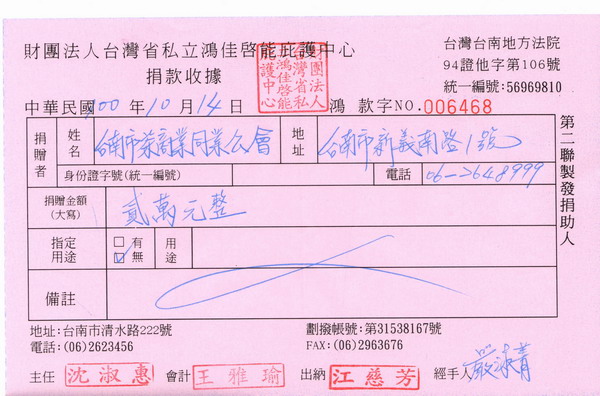 財團法人台灣省私立鴻佳啓能庇護中心
捐款收據
台灣台南地方法院
94證他字第106號
統一編號:56969810
財團法人台灣省私立鴻佳啓能庇護中心
中華民國 100 年 10 月 14 日 鴻 款字NO.006468
捐贈者 姓名 台南市茶商業同業公會 地址 台南市新義南路1號
身份證字號(統一編號) 電話 06-2648999
捐贈金額(大寫) 貳萬元整
指定用途 □有 ☑無 用途
備註
第二聯製發捐助人
地址:台南市清水路222號 劃撥帳號:第31538167號
電話:(06)2623456 FAX:(06)2963676
主任 沈淑惠 會計 王雅瑜 出納 江慈芳 經手人 嚴淑青